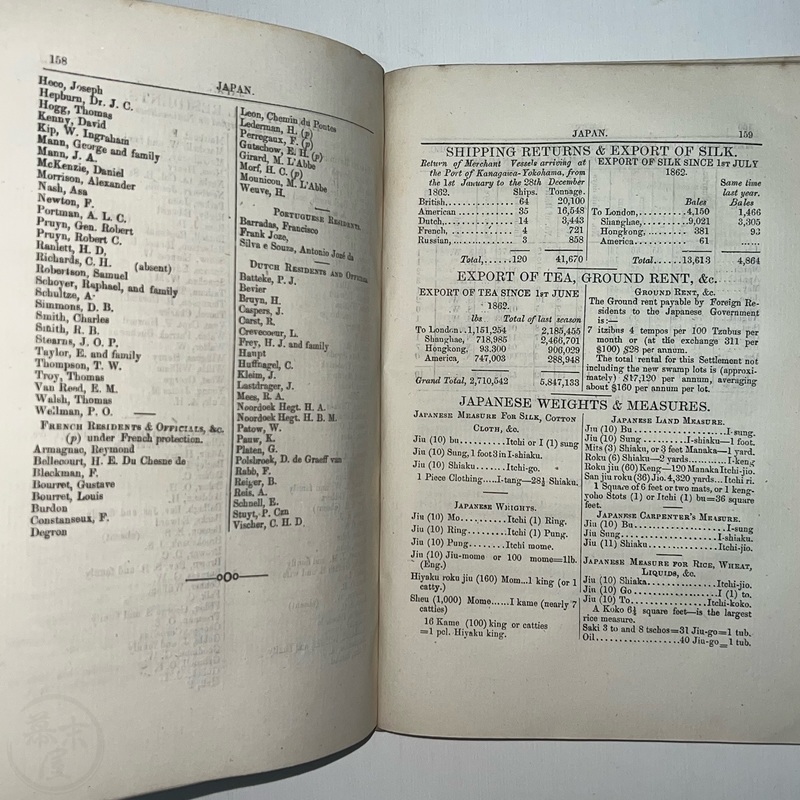 158
JAPAN.
Heco, Joseph
Hepburn, Dr. J. C.
Hogg, Thomas
Kenny, David
Kip, W. Ingraham
Mann, George and family
Mann, J. A.
McKenzie, Daniel
Morrison, Alexander
Nash, Asa
Newton, F.
Portman, A. L. C.
Pruyn, Gen. Robert
Pruyn, Robert C.
Ranlett, H. D.
Richards, C. H. (absent)
Robertson, Samuel
Schoyer, Raphael, and family
Schultze, A.
Simmons, D. B.
Smith, Charles
Smith, R. B.
Stearns, J. O. P.
Taylor, E. and family
Thompson, T. W.
Troy, Thomas
Van Reed, E. M.
Walsh, Thomas
Wellman, P. O.
FRENCH RESIDENTS & OFFICIALS, &c.
(p) under French protection.
Armagnac, Reymond
Bellecourt, H. E. Du Chesne de
Bleckman, F.
Bourret, Gustave
Bourret, Louis
Burdon
Constansoux, F.
Degron
Leon, Chemin du Poutes
Lederman, H. (p)
Perregaux, F. (p)
Gutschow, E. H. (p)
Girard, M. L'Abbe
Morf, H. C. (p)
Mounicou, M. L'Abbe
Weuve, H.
PORTUGUESE RESIDENTS.
Barradas, Francisco
Frank Joze,
Silva e Souze, Antonio José da
DUTCH RESIDENTS AND OFFICIAL
Batteke, P. J.
Bevier
Bruyn, H.
Caspers, J.
Carst, R.
Crevecoeur, L.
Frey, H. J. and family
Haupt
Huffnagel, C.
Kleim, J.
Lastdrager, J.
Mees, R. A.
Noordoek Hegt. H. A.
Noordoek Hegt. H. B. M.
Patow, W.
Pauw, K.
Platen, G.
Polsbroek, D. de Graeff van
Rabb, F.
Reiger, B.
Reis, A.
Schnell, E.
Stuyt, P. Czn
Vischer, C. H. D.
JAPAN. 159
SHIPPING RETURNS & EXPORT OF SILK.
Return of Merchant Vessels arriving at
the Port of Kanagawa-Yokohama, from
the 1st January to the 28th December
1862. Ships. Tonnage.
British,........ 64 20,100
American ...... 35 16,548
Dutch,......... 14 3,443
French, ........ 4 721
Russian, ....... 3 858
Total,......120 41,670
EXPORT OF SILK SINCE 1ST JULY
1862.
Same time
last year.
Bales Bales
To London,.......4,150 1,466
Shanghae,.......9,021 3,305
Hongkong,....... 381 93
America,........ 61 ......
Total,...........13,613 4,864
EXPORT OF TEA, GROUND RENT, &c.
EXPORT OF TEA SINCE 1ST JUNE
1862.
lbs Total of last season
To London...1,151,254 2,185,455
Shanghae, 718,985 2,466,701
Hongkong, 93,300 906,029
America, 747,003 288,948
Grand Total, 2,710,542 5,847,133
GROUND RENT, &c.
The Ground rent payable by Foreign Re-
sidents to the Japanese Government
is:—
7 itzibus 4 tempos per 100 Tzubus per
month or (at the exchange 311 per
$100) $28 per annum.
The total rental for this Settlement not
including the new swamp lots is (approxi-
mately) $17,120 per annum, averaging
about $160 per annum per lot.
JAPANESE WEIGHTS & MEASURES.
JAPANESE MEASURE FOR SILK, COTTON
CLOTH, &c.
Jiu (10) bu..........Itchi or I (1) sung
Jiu (10) Sung, 1 foot 3 in I-shiaku.
Jiu (10) Shiaku..........Itchi-go.
1 Piece Clothing....I-tang—28½ Shiaku.
JAPANESE WEIGHTS.
Jiu (10) Mo..........Itchi (1) Ring.
Jiu (10) Ring........Itchi (1) Pung.
Jiu (10) Pung........Itchi mome.
Jiu (10) Jiu-mome or 100 mome=1lb.
(Eng.)
Hiyaku roku jiu (160) Mom...1 king (or 1
catty.)
Sheu (1,000) Mome.....I kame (nearly 7
catties)
16 Kame (100) king or catties
=1 pcl. Hiyaku king.
JAPANESE LAND MEASURE.
Jiu (10) Bu......................I-sung.
Jiu (10) Sung ........I-shiaku—1 foot.
Mits (3) Shiaku, or 3 feet Manaka—1 yard.
Roku (6) Shiaku—2 yards.......I-keng
Roku jiu (60) Keng—120 Manaka Itchi-jio.
San jiu roku (36) Jio. 4,320 yards...Itchi ri.
1 Square of 6 feet or two mats, or 1 keng-
yoho Stots (1) or Itchi (1) bu=36 square
feet.
JAPANESE CARPENTER'S MEASURE.
Jiu (10) Bu......................I-sung
Jiu Sung........................I-shiaku.
Jiu (11) Shiaku................Itchi-jio.
JAPANESE MEASURE FOR RICE, WHEAT,
LIQUIDS, &c.
Jiu (10) Shiaka................Itchi-jio.
Jiu (10) Go......................I (1) to.
Jiu (10) To...................Itchi-koko.
A Koko 6½ square feet—is the largest
rice measure.
Saki 3 to and 8 tschos=31 Jiu-go=1 tub.
Oil.....................40 Jiu-go=1 tub.
幕末屋